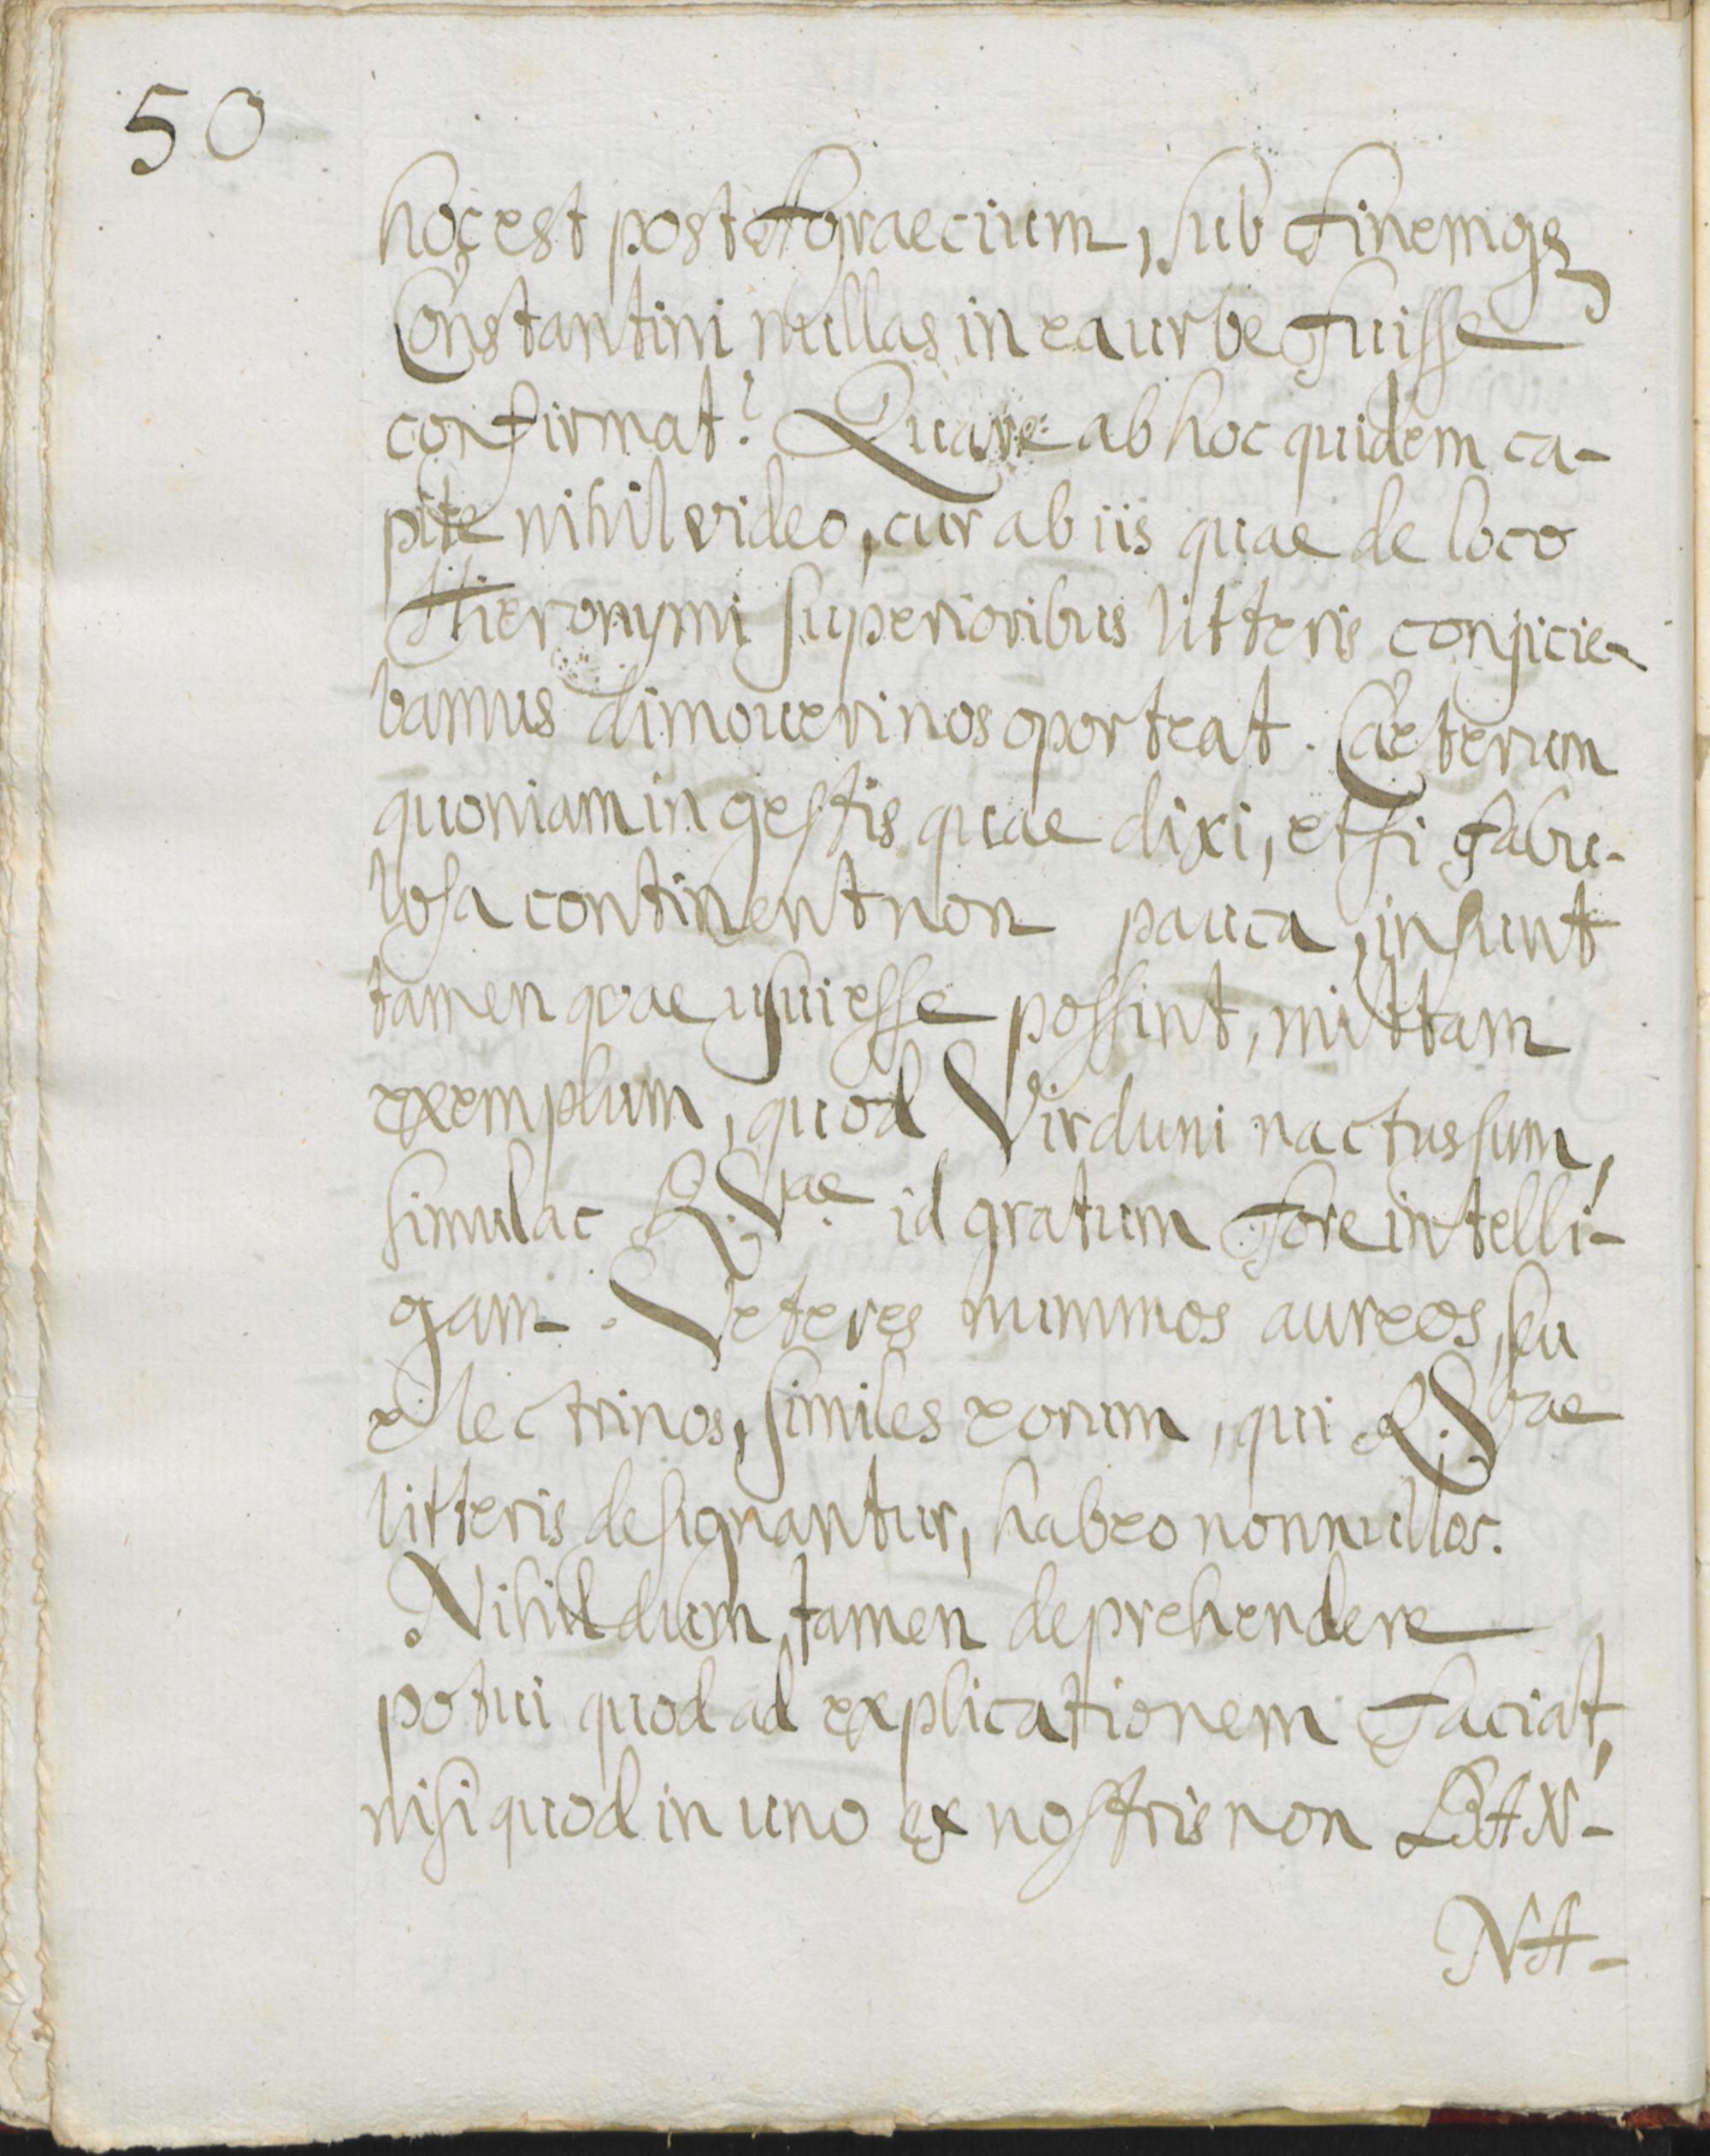 50
hoc est post Agraecium, sub finemq;
Constantini nullas in ea urbe fuisse
confirmat? Quare ab hoc quidem ca-
pite nihil video, cur ab iis quae de loco
Hieronymi superioribus litteris conjicie-
bamus dimoveri nos oporteat. Caeterum
quoniam in gestis quae dixi, etsi fabu-
losa continent non pauca, insunt
tamen quae usui esse possint, mittam
exemplum, quod Virduni nactus sum,
simulac R. Vae. id gratum fore intelli-
gam. Veteres nummos aureos, seu
electrinos, similes eorum, qui R. Vae
litteris designantur, habeo nonnullos.
Nihildum tamen deprehendere
potui quod ad explicationem faciat,
nisi quod in uno ex nostris non BAN-
NA-